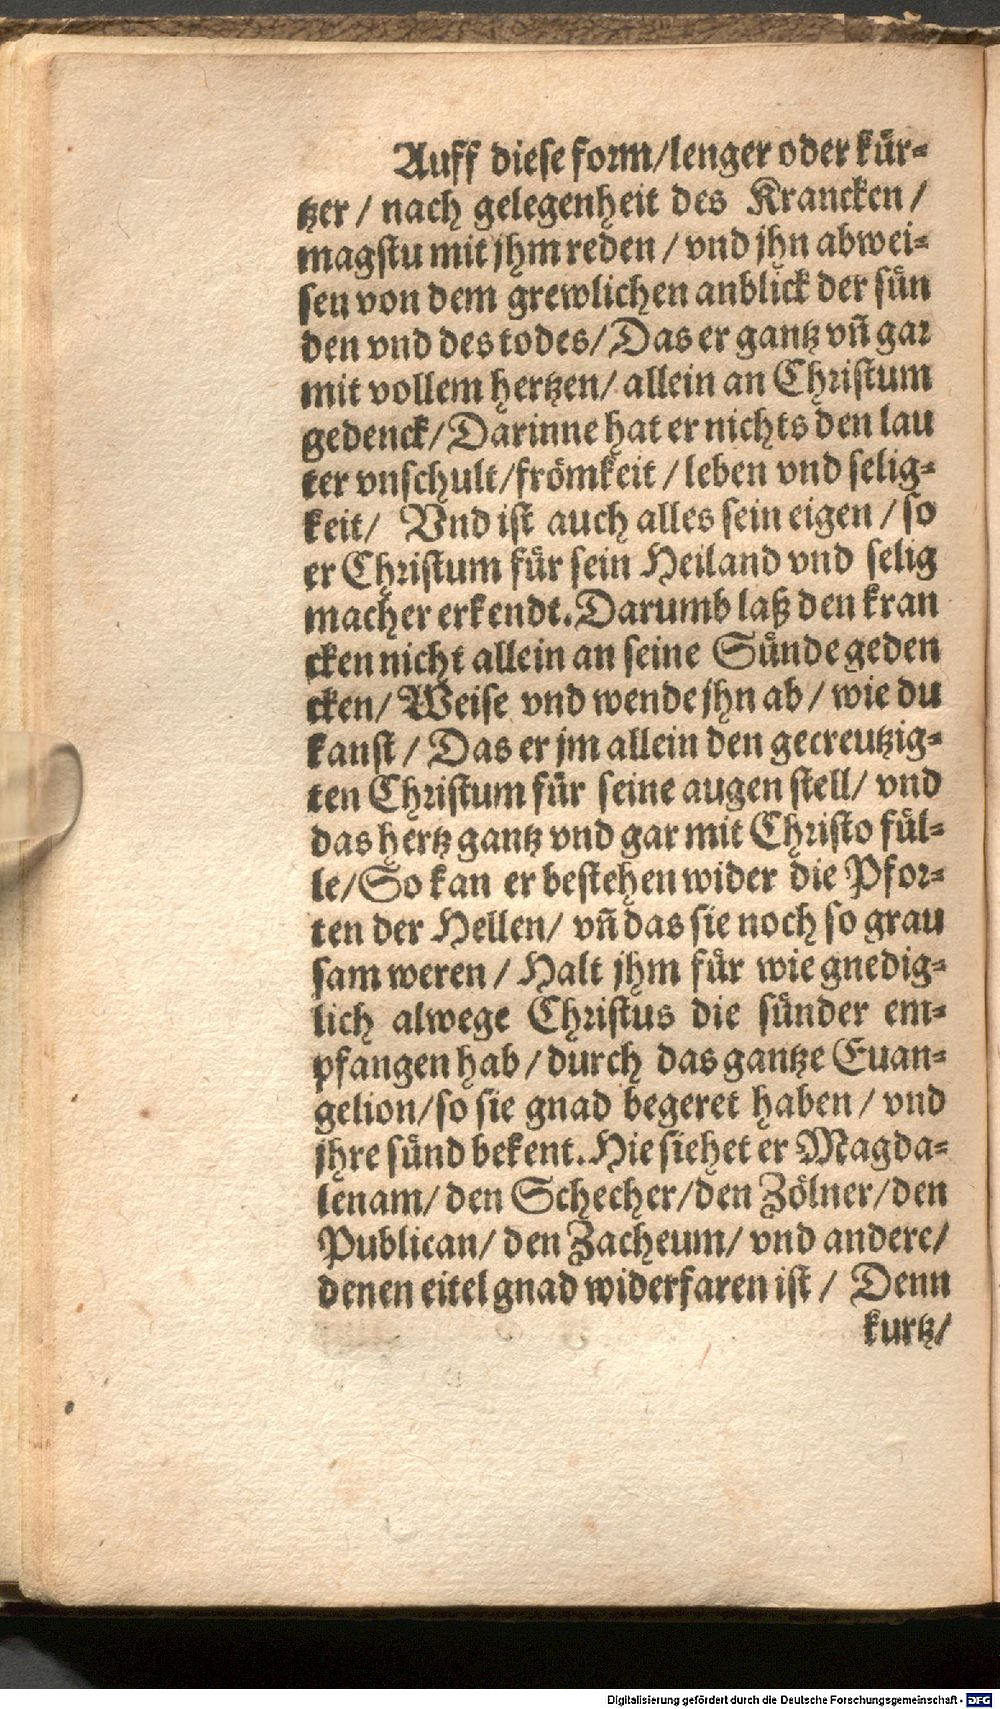 Auff diese form/lenger oder kür-
tzer / nach gelegenheit des Krancken /
magstu mit jhm reden / vnd jhn abwei-
sen von dem grewlichen anblick der sün
den vnd des todes/ Das er gantz vñ gar
mit vollem hertzen/ allein an Christum
gedenck/ Darinne hat er nichts den lau
ter vnschult/frömkeit / leben vnd selig-
keit/ Vnd ist auch alles sein eigen / so
er Christum für sein Heiland vnd selig
macher erkendt. Darumb laß den kran
cken nicht allein an seine Sünde geden
cken/ Weise vnd wende jhn ab / wie du
kanst / Das er jm allein den gecreutzig-
ten Christum für seine augen stell/ vnd
das hertz gantz vnd gar mit Christo fül-
le/ So kan er bestehen wider die Pfor-
ten der Hellen/ vñ das sie noch so grau
sam weren / Halt jhm für wie gnedig-
lich alwege Christus die sünder em-
pfangen hab / durch das gantze Euan-
gelion/so sie gnad begeret haben / vnd
jhre sünd bekent. Hie siehet er Magda-
lenam/ den Schecher/den Zölner/den
Publican/ den Zacheum/ vnd andere/
denen eitel gnad widerfaren ist / Denn
kurtz/
Digitalisierung gefördert durch die Deutsche Forschungsgemeinschaft - DFG